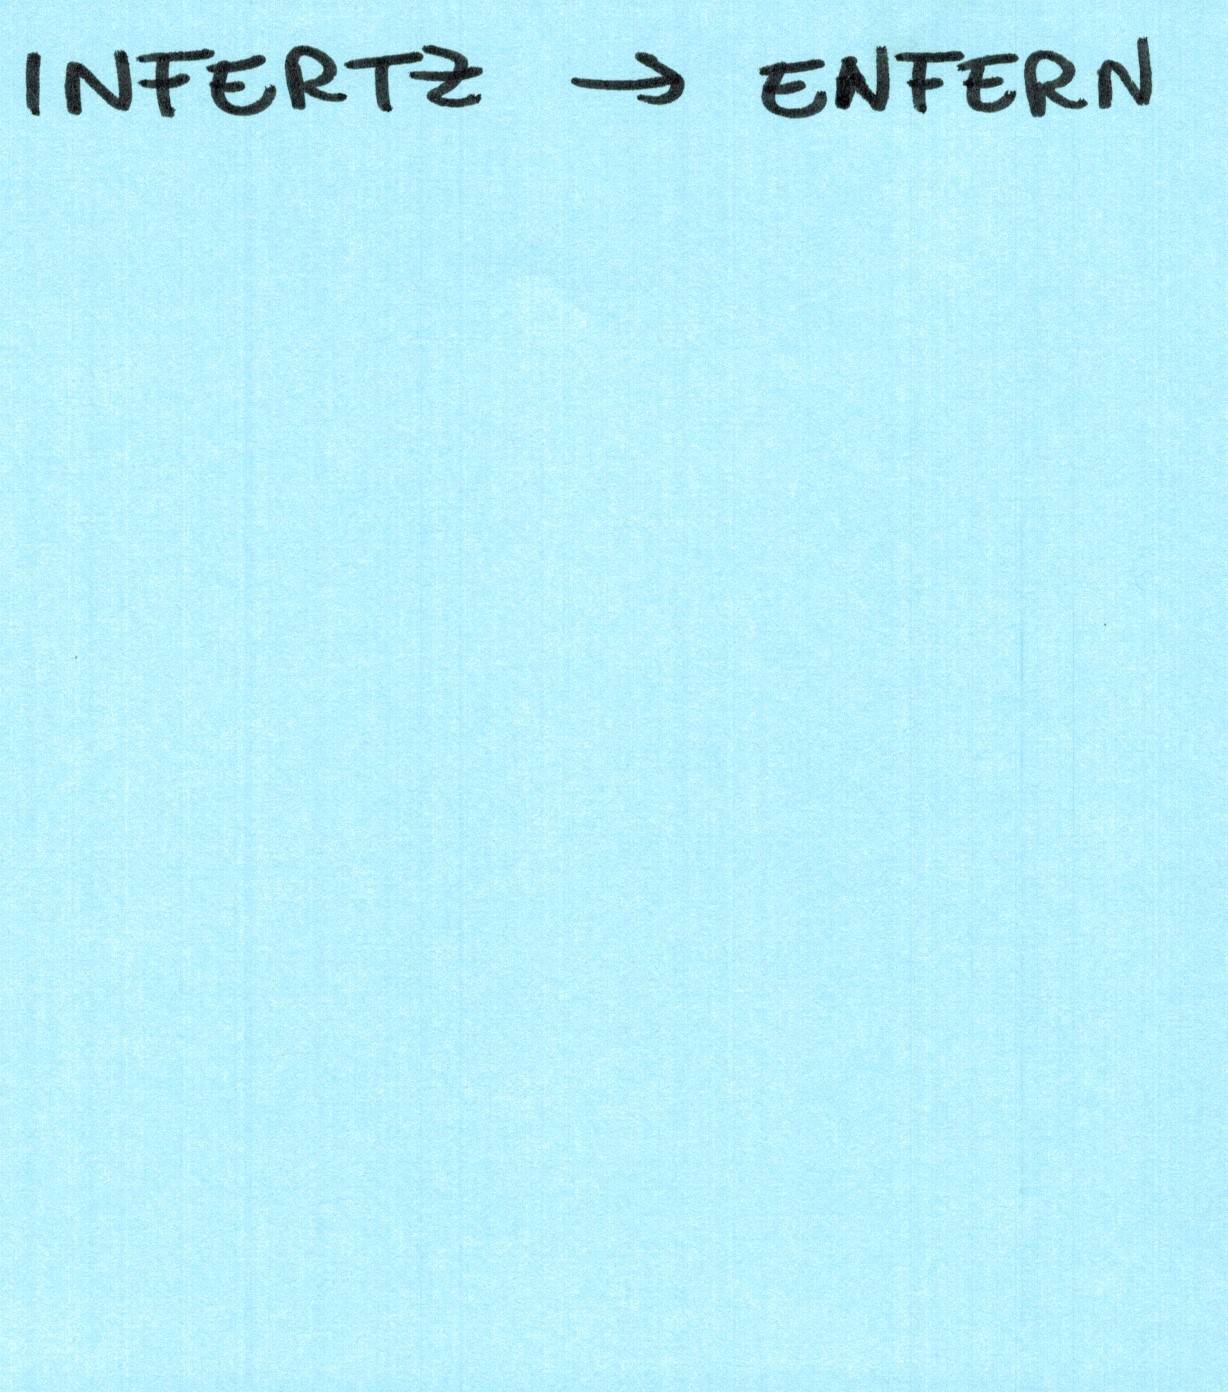 INFERTZ → ENFERN